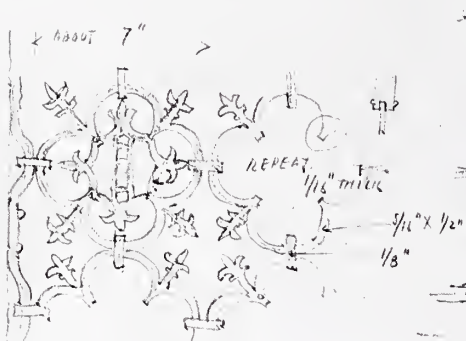 ABOUT 7"
REPEAT
1/16" THICK
5/16" X 1/2"
1/8"